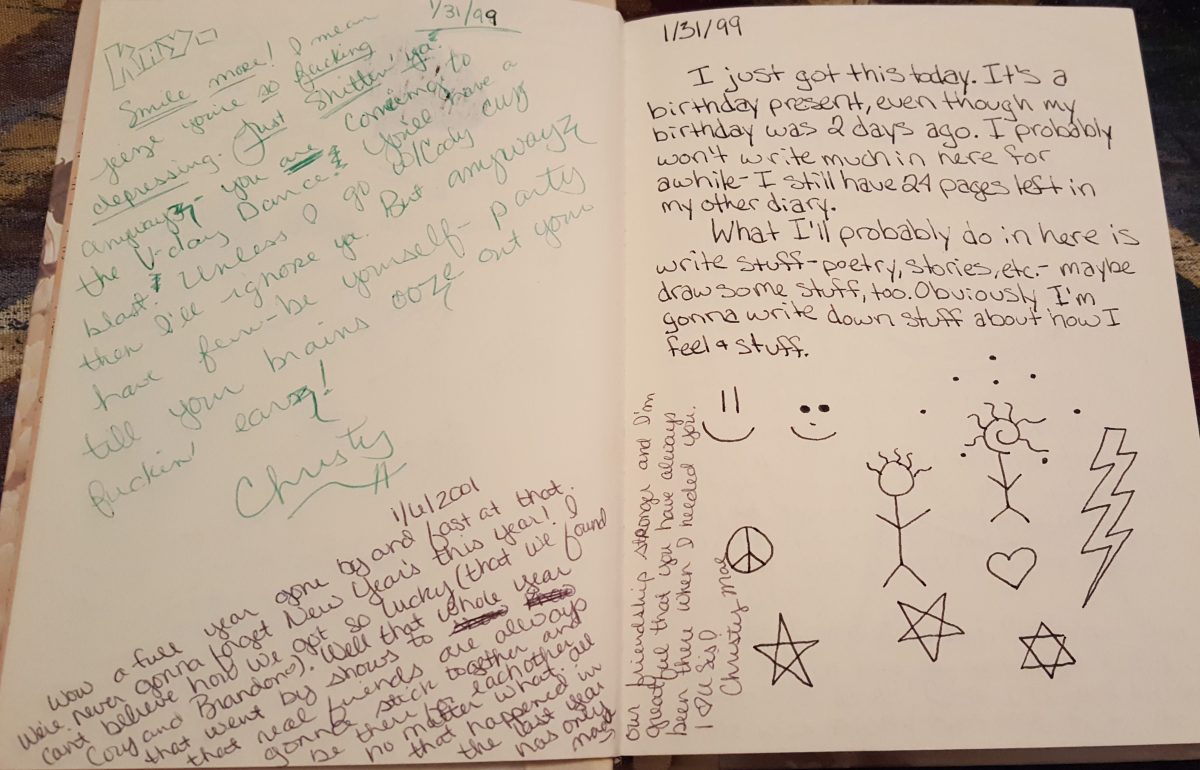 KitY-
1/31/99
Smile more! I mean
jeeze you're so fucking
depressing. Just Shitten' ya!
Anywayz- you are comeing to
the V-day Dance! You'll have a
blast! Unless I go w/Cody cuz
then I'll ignore ya. But anywayz
have fun-be yourself- party
till your brains ooze out your
fuckin' earz!
Christy
1/6/2001
Wow a full year gone by and fast at that.
We're never gonna forget New Year's this year! I
can't believe how we got so lucky (that we found
Cory and Brandon). Well that whole year
that went by shows to
that real friends are always
gonna stick together and
be there for eachother
no matter what. all
that happened in
the last year
has only
made
our friendship stronger and I'm
greatful that you have always
been there when I needed you.
I ♡ U Sis!
Christy Mae
1/31/99
I just got this today. It's a
birthday present, even though my
birthday was 2 days ago. I probably
won't write much in here for
awhile- I still have 24 pages left in
my other diary.
What I'll probably do in here is
write stuff-poetry, stories, etc.- maybe
draw some stuff, too. Obviously I'm
gonna write down stuff about how I
feel & stuff.